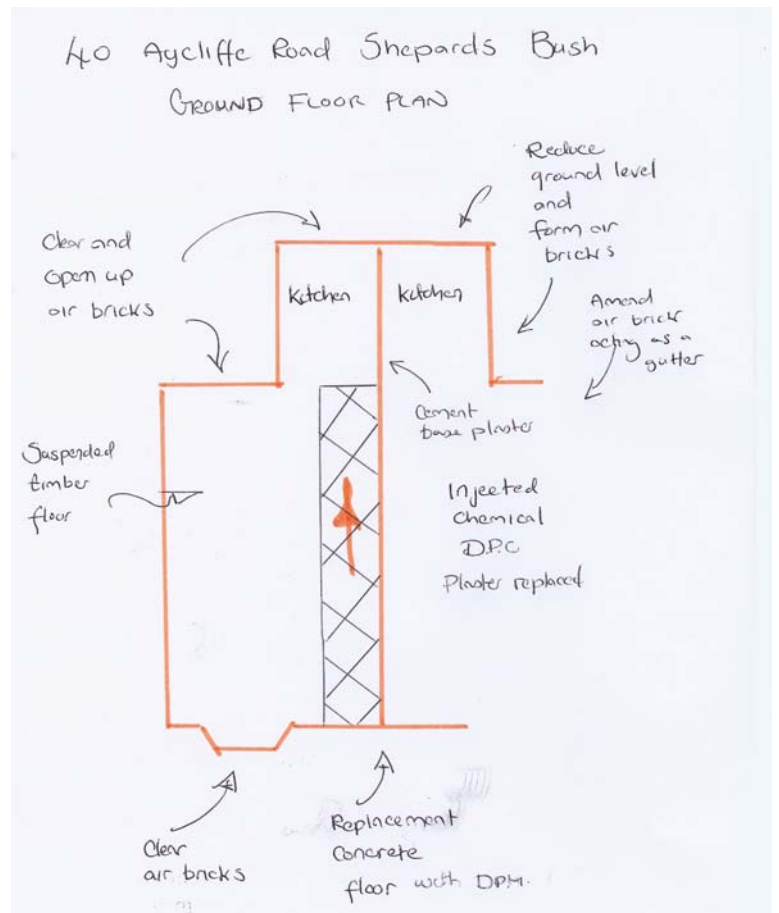 40 Aycliffe Road Shepards Bush
GROUND FLOOR PLAN
Reduce
ground level
and
form air
bricks
Clear and
Open up
air bricks
Kitchen
Kitchen
Amend
air brick
acting as a
gutter
Cement
base plaster
Suspended
timber
floor
Injected
Chemical
D.P.C
Plaster replaced
Clear
air bricks
Replacement
Concrete
floor with DPM.